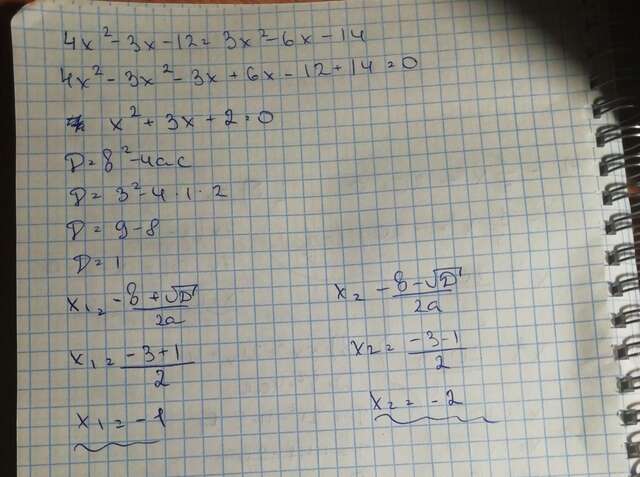 4x² - 3x - 12 = 3x² - 6x - 14
4x² - 3x² - 3x + 6x - 12 + 14 = 0
x² + 3x + 2 = 0
D = b² - 4ac
D = 3² - 4 · 1 · 2
D = 9 - 8
D = 1
x₁ = -b + √D / 2a
x₂ = -b - √D / 2a
x₁ = -3 + 1 / 2
x₂ = -3 - 1 / 2
x₁ = -1
x₂ = -2